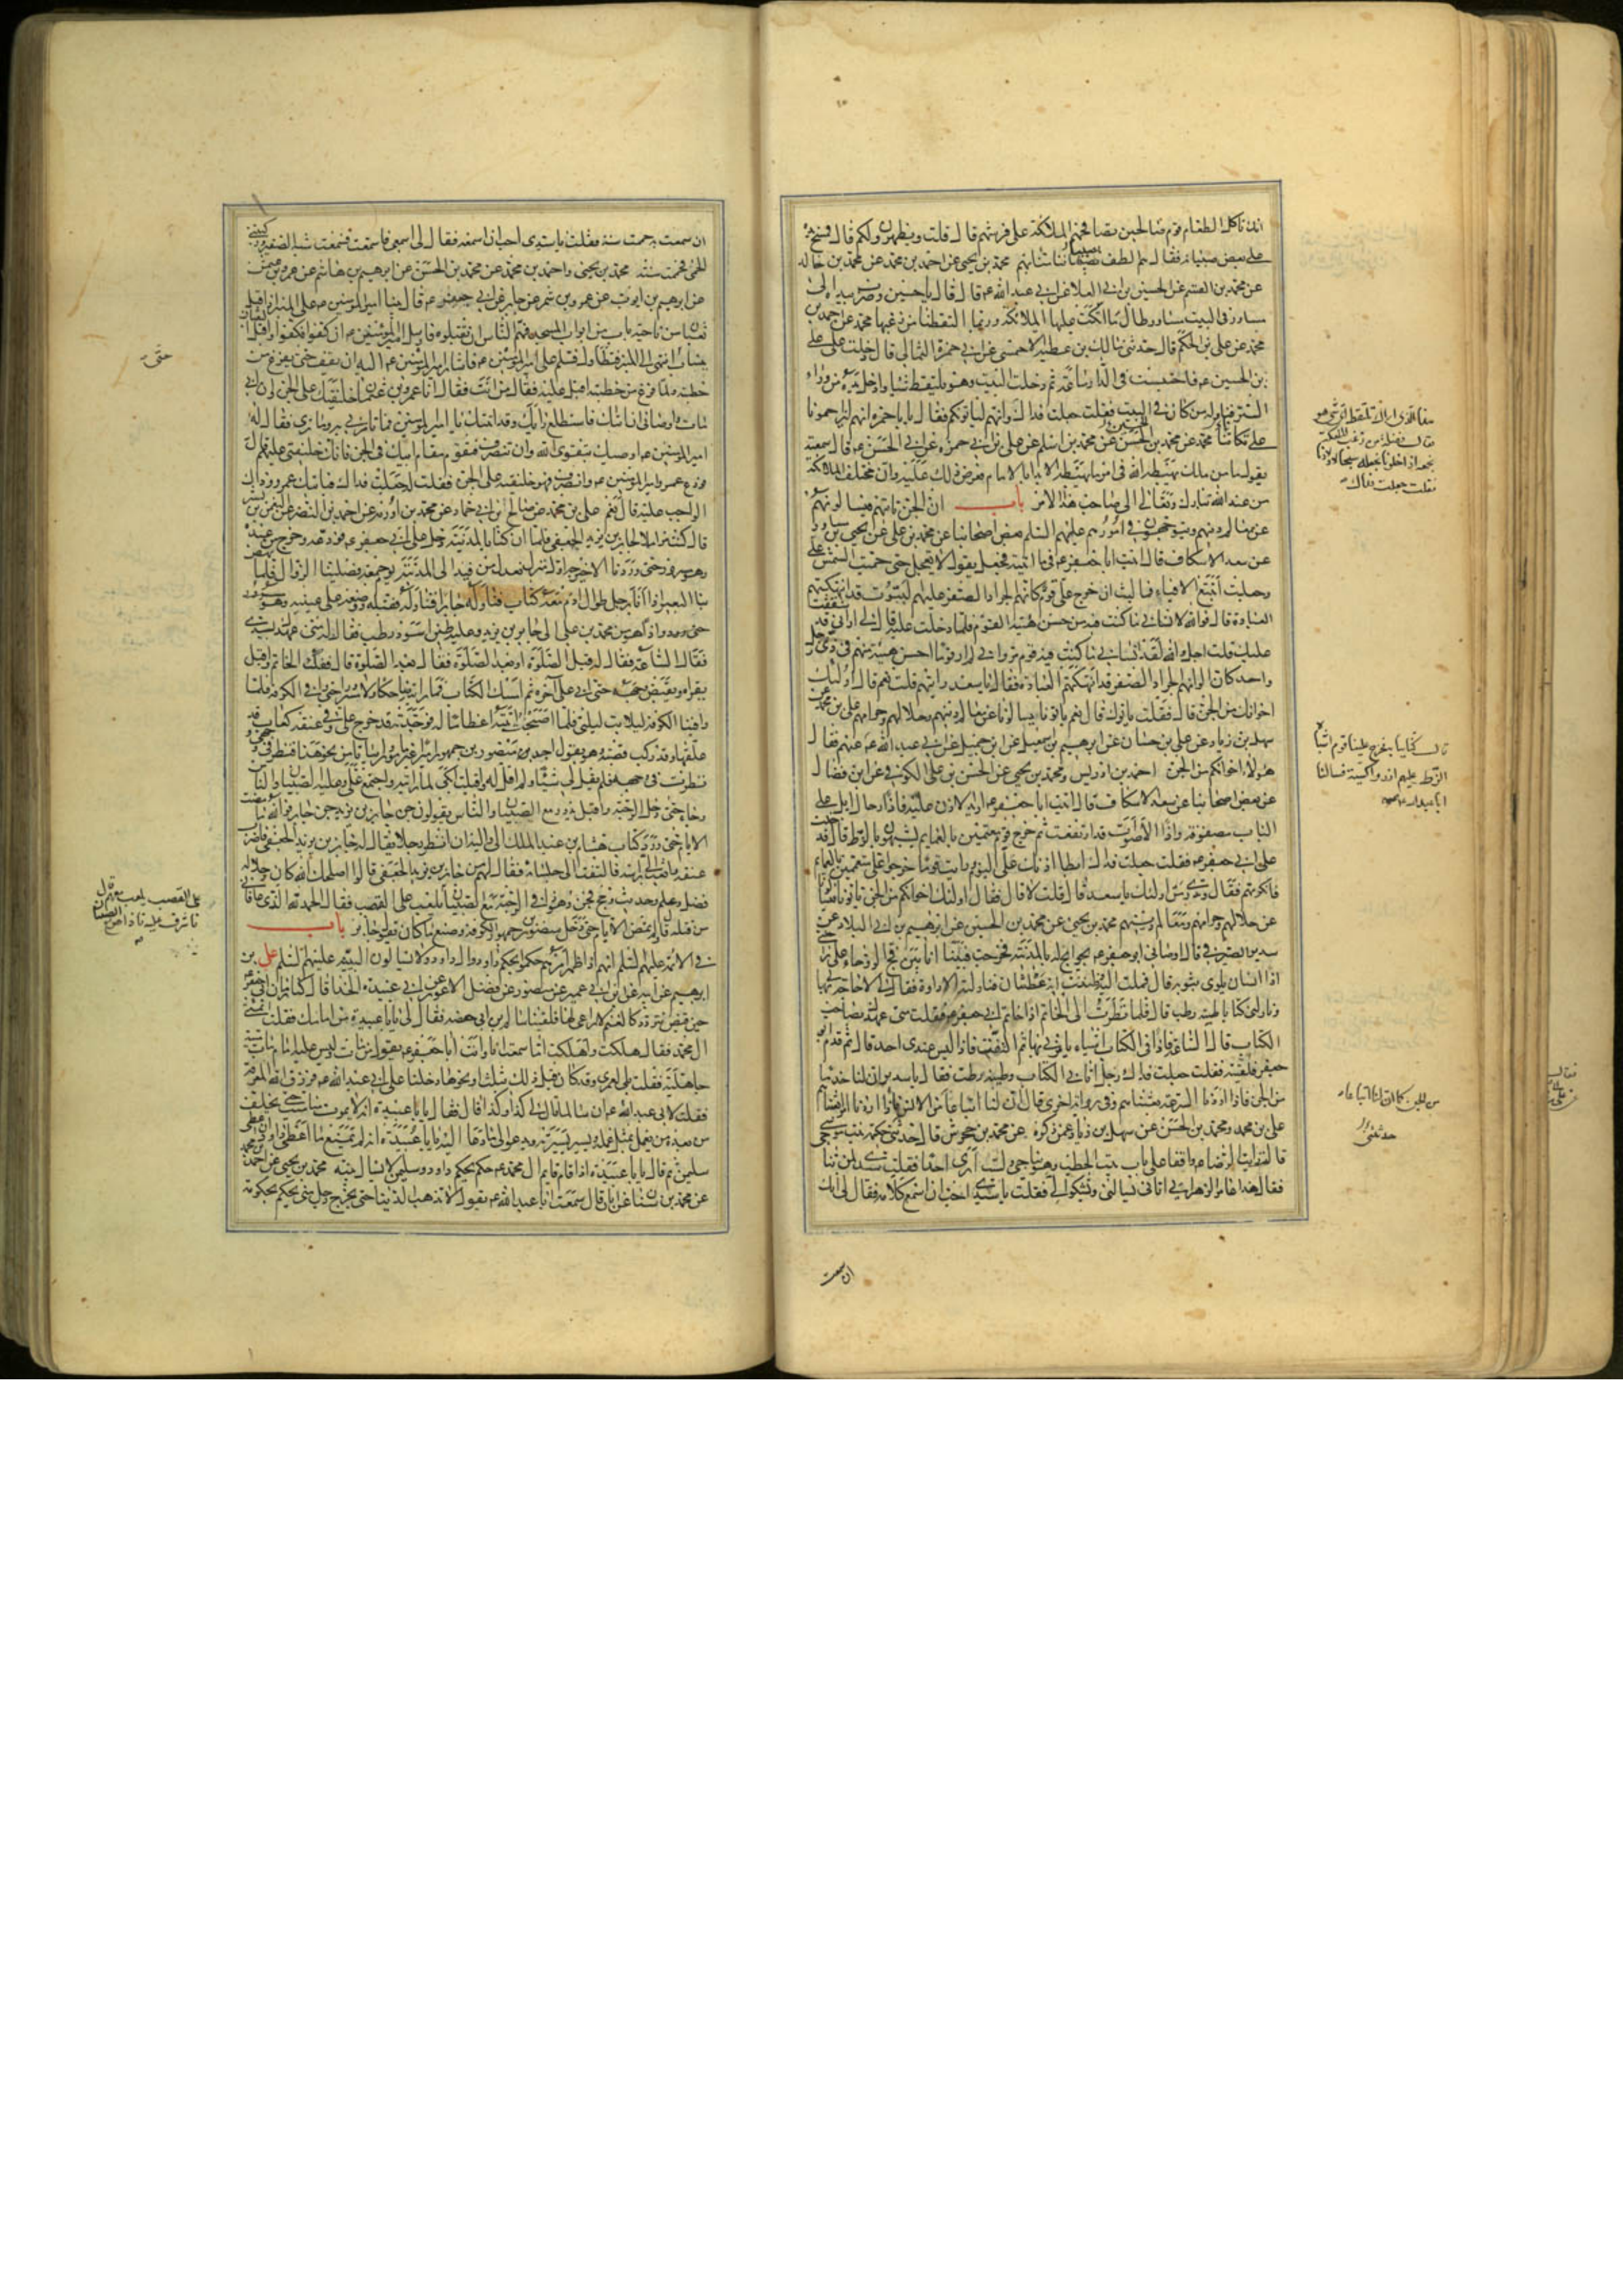 تاكل الطعام قوم صالحين تصافحهم الملائكة على فرشهم قال قلت ويظهرون لكم قال فمسح
على بعض صبيانه فقال هم الطف بصبياننا منا بهم محمد بن يحيى عن احمد بن محمد عن محمد بن خالد
عن محمد بن القسم عن الحسين بن ابي العلا عن ابي عبد الله عم قال قال يا حسين وضرب بيده الى
مساور في البيت مساور طال ما اتكت عليها الملائكة وربما التقطنا من زغبها محمد عن احمد بن
محمد عن علي بن الحكم قال حدثني مالك بن عطية الاحمسي عن ابي حمزة الثمالي قال دخلت على علي
بن الحسين عم فاحتبست في الدار ساعة ثم دخلت البيت وهو يلتقط شيا وادخل يده من وراء
الستر فناوله من كان في البيت فقلت جعلت فداك وانهم لياتونكم فقال يا با حمزة انهم ليزاحمونا
على تكاتنا محمد عن محمد بن الحسن عن محمد بن اسلم عن علي بن ابي حمزة عن ابي الحسن عم قال سمعته
يقول ما من ملك يهبطه الله في امر ما يهبطه الا بدا بالامام فعرض ذلك عليه وان مختلف الملائكة
من عند الله تبارك وتعالى الى صاحب هذا الامر باب ان الجن تاتيهم فيسالونهم
عن معالم دينهم ويتوجهون في امورهم عليهم السلم بعض اصحابنا عن محمد بن علي عن يحيى بن مساور
عن سعد الاسكاف قال اتيت ابا جعفر عم في بعض ما اتيته فجعل يقول لا تعجل حتى حميت الشمس علي
وجعلت اتتبع الافياء فما لبث ان خرج علي قوم كانهم الجراد الصفر عليهم البتوت قد انتهكتهم
العبادة قال فوالله لانساني ما كنت فيه من حسن هيئة القوم فلما دخلت عليه قال لي اراني قد شققت
عليك قلت اجل والله لقد انساني ما كنت فيه قوم مروا بي لم ار قوما احسن هيئة منهم في زي رجل
واحد كان الوانهم الجراد الصفر قد انتهكتهم العبادة فقال يا سعد رايتهم قلت نعم قال اولئك
اخوانك من الجن قال فقلت ياتونك قال نعم ياتونا يسالونا عن معالم دينهم وحلالهم وحرامهم علي بن محمد عن
سهل بن زياد عن علي بن حسان عن ابرهيم بن اسمعيل عن ابن جبل عن ابي عبد الله عم
هؤلاء اخوانكم من الجن احمد بن ادريس ومحمد بن يحيى عن الحسن بن علي الكوفي عن ابن فضال
عن بعض اصحابنا عن سعد الاسكاف قال اتيت ابا جعفر عم اريد الاذن عليه فاذا رحال ابل على
الباب مصفوفة واذا الاصوات قد ارتفعت ثم خرج قوم معتمين بالعمايم يشبهون الزط قال فدخلت
على ابي جعفر عم فقلت جعلت فداك ابطا اذنك علي اليوم ورايت قوما خرجوا علي معتمين بالعمائم
فانكرتهم فقال وتدري من اولئك يا سعد قال قلت لا قال فقال اولئك اخوانكم من الجن ياتونا فيسالونا
عن حلالهم وحرامهم ومعالم دينهم محمد بن يحيى عن محمد بن الحسين عن ابرهيم بن ابي البلاد عن
سدير الصيرفي قال اوصاني ابو جعفر عم بحوايج له بالمدينة فخرجت فبينا انا بين فج الروحاء على راحلتي
اذا انسان يلوي بثوبه قال فملت اليه وظننت انه عطشان فناولته الاداوة فقال لي لا حاجة لي بها
وناولني كتابا طينه رطب قال فلما نظرت الى الخاتم اذا خاتم ابي جعفر عم فقلت متى عهدك بصاحب
الكتاب قال الساعة واذا في الكتاب اشياء يامرني بها ثم التفت فاذا ليس عندي احد قال ثم قدم ابو
جعفر فلقيته فقلت جعلت فداك رجل اتاني الكتاب وطينه رطب فقال يا سدير ان لنا خدما
من الجن فاذا اردنا السرعة بعثناهم وفي رواية اخرى قال ان لنا اتباعا من الجن كما ان لنا اتباعا من الانس فاذا اردنا امرا بعثناهم
علي بن محمد ومحمد بن الحسن عن سهل بن زياد عمن ذكره عن محمد بن جحرش قال حدثتني حكيمة بنت موسى
قالت رايت الرضا عم واقفا على باب بيت الحطب وهو يناجي ولست ارى احدا فقلت يا سيدي لمن تناجي
فقال هذا عامر الزهرائي اتاني يسالني ويشكو الي فقلت يا سيدي احب ان اسمع كلامه فقال لي انك
ان سمعت
ان سمعت به حممت سنة فقلت يا سيدي احب ان اسمعه فقال لي اسمعي فاستمعت فسمعت شبه الصفير وركبتني
الحمى فحممت سنة محمد بن يحيى واحمد بن محمد عن محمد بن الحسن عن ابرهيم بن هاشم عن عمرو بن عثمن
عن ابرهيم بن ايوب عن عمرو بن شمر عن جابر عن ابي جعفر عم قال بينا امير المومنين عم على المنبر اذ اقبل
ثعبان من ناحية باب من ابواب المسجد فهم الناس ان يقتلوه فارسل امير المومنين عم ان كفوا فكفوا واقبل الثعبان
ينساب حتى انتهى الى المنبر فتطاول فسلم على امير المومنين عم فاشار امير المومنين عم اليه ان يقف حتى يفرغ من
خطبته ولما فرغ من خطبته اقبل عليه فقال من انت فقال انا عمرو بن عثمن خليفتك على الجن وان ابي
مات واوصاني ان اتيك فاستطلع رايك وقد اتيتك يا امير المومنين فما تامرني به وما ترى فقال له
امير المومنين عم اوصيك بتقوى الله وان تنصرف فتقوم مقام ابيك في الجن فانك خليفتي عليهم قال
فودع عمرو امير المومنين عم وانصرف فهو خليفته على الجن فقلت له جعلت فداك فياتيك عمرو وذاك
الواجب عليه قال نعم علي بن محمد عن صالح بن ابي حماد عن محمد بن اورمة عن احمد بن النضر عن النعمن بن بشير
قال كنت مزاملا لجابر بن يزيد الجعفي فلما ان كنا بالمدينة دخل على ابي جعفر عم فودعه وخرج من عنده
وهو مسرور حتى وردنا الاخيرجة اول منزل نعدل من فيد الى المدينة يوم جمعة فصلينا الزوال فلما نهض
بنا البعير اذا انا برجل طوال ادم معه كتاب فناوله جابرا فتناوله فقبله ووضعه على عينيه
واذا هو من محمد بن علي الى جابر بن يزيد وعليه طين اسود رطب فقال له متى عهدك بسيدي
فقال الساعة فقال له قبل الصلوة او بعد الصلوة فقال بعد الصلوة قال ففك الخاتم واقبل
يقراه ويقبض وجهه حتى اتى على اخره ثم امسك الكتاب فما رايته ضاحكا ولا مسرورا حتى وافى الكوفة فلما
وافينا الكوفة ليلا بت ليلتي فلما اصبحت اتيته اعظاما له فوجدته قد خرج علي وفي عنقه كعاب قد
علقها وقد ركب قصبة وهو يقول اجد منصور بن جمهور اميرا غير مامور وابياتا من نحو هذا فنظر في وجهي و
نظرت في وجهه فلم يقل لي شيئا ولم اقل له واقبلت ابكي لما رايته واجتمع علي وعليه الصبيان والناس
وجاء حتى دخل الرحبة واقبل يدور مع الصبيان والناس يقولون جن جابر بن يزيد جن جابر فوالله ما مضت
الايام حتى ورد كتاب هشام بن عبد الملك الى واليه ان انظر رجلا يقال له جابر بن يزيد الجعفي فاضرب
عنقه وابعث الي براسه فالتفت الى جلسائه فقال لهم من جابر بن يزيد الجعفي قالوا اصلحك الله كان رجلا له
فضل وعلم وحديث وحج فجن وهو ذا في الرحبة مع الصبيان يلعب على القصب فقال الحمد لله الذي عافاني
من قتله قال ولم تمض الايام حتى دخل منصور بن جمهور الكوفة وصنع ما كان يقول جابر باب
في الائمة عليهم السلم انهم اذا ظهر امرهم حكموا بحكم داود وال داود ولا يسالون البينة عليهم السلم علي بن
ابرهيم عن ابيه عن ابن ابي عمير عن منصور عن فضل الاعور عن ابي عبيدة الحذا قال كنا زمان ابي جعفر عم
حين قبض نتردد كالغنم لا راعي لها فلقينا سالم بن ابي حفصة فقال لي يا با عبيدة من امامك فقلت ائمتي
ال محمد فقال هلكت واهلكت اما سمعت انا وانت ابا جعفر عم يقول من مات وليس عليه امام مات ميتة
جاهلية فقلت بلى لعمري وقد كان قبل ذلك بثلث او نحوها دخلنا على ابي عبد الله عم فرزق الله المعرفة
فقلت لابي عبد الله عم ان سالما قال لي كذا وكذا قال فقال يا با عبيدة انه لا يموت منا ميت حتى يخلف
من بعده من يعمل بمثل عمله ويسير بسيرته ويدعو الى ما دعا اليه يا با عبيدة انه لم يمنع ما اعطي داود ان اعطى
سليمن ثم قال يا با عبيدة اذا قام قائم ال محمد عم حكم بحكم داود وسليمن لا يسال بينة محمد بن يحيى عن احمد بن محمد
عن محمد بن سنان عن ابان قال سمعت ابا عبد الله عم يقول لا تذهب الدنيا حتى يخرج رجل مني يحكم بحكومة
حتى